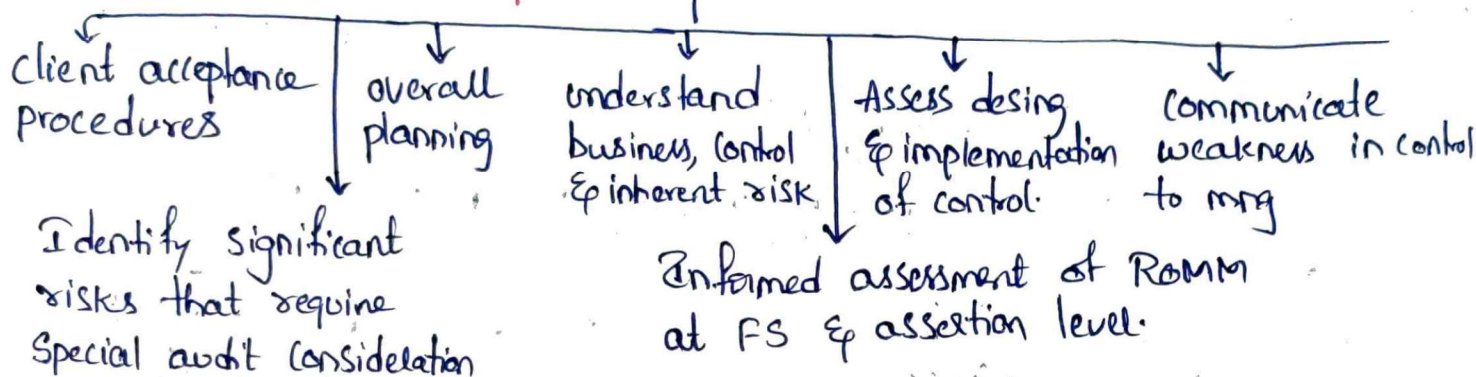 Client acceptance
procedures
overall
planning
understand
business, control
& inherent risk
Assess desing
& implementation
of control.
communicate
weakness in control
to mng
Identify significant
risks that require
Special audit consideration
Informed assessment of ROMM
at FS & assertion level.